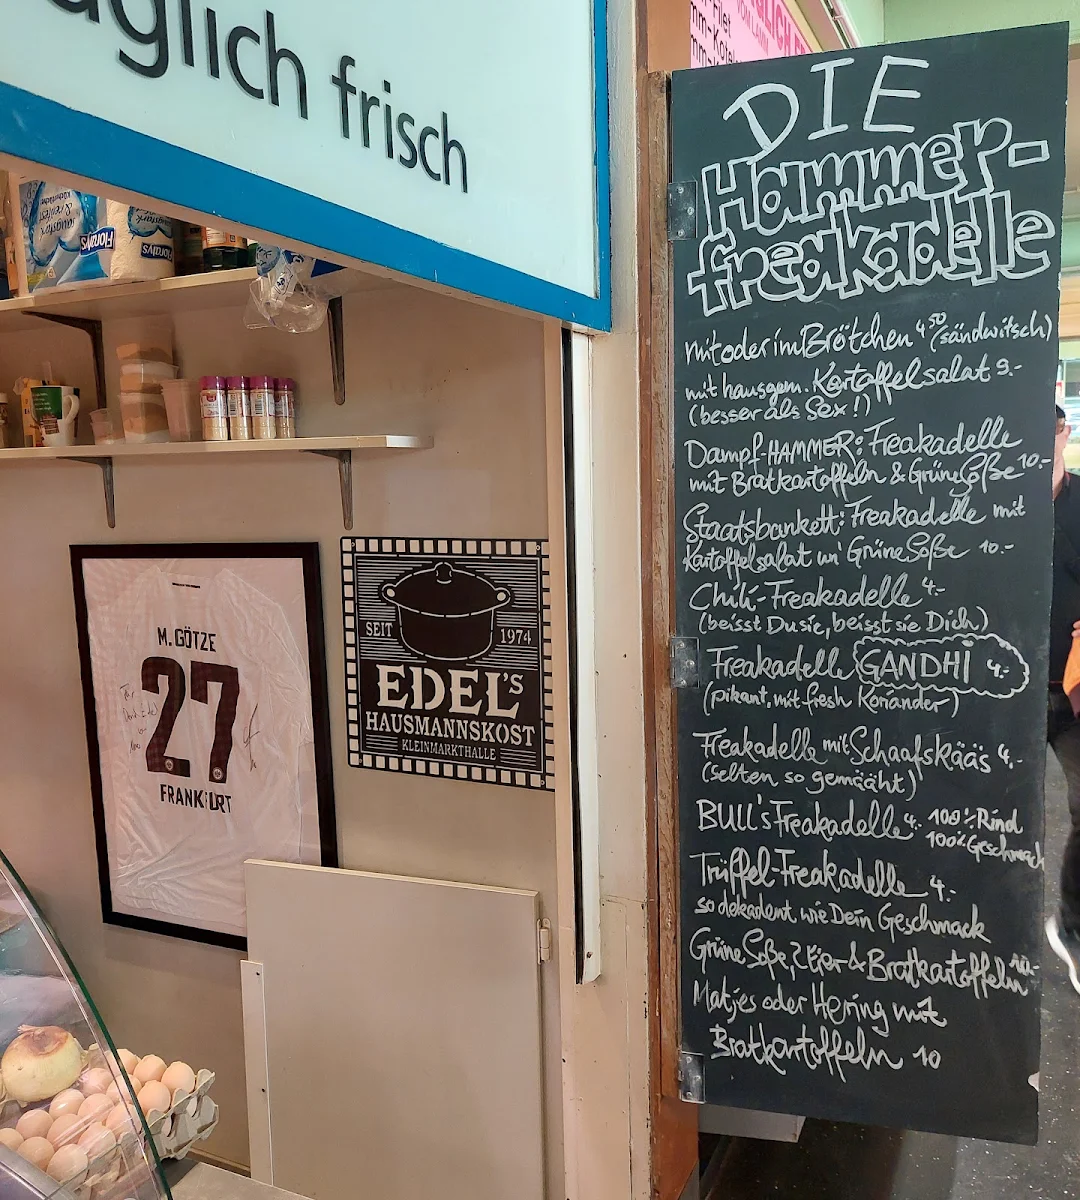 äglich frisch
Floralys
Floralys
M. GÖTZE
27
FRANKFURT
SEIT 1974
EDEL'S
HAUSMANNSKOST
KLEINMARKTHALLE
DIE
Hammer-
freakadelle
mit oder im Brötchen 4.50 (sändwitsch)
mit hausgem. Kartoffelsalat 9.-
(besser als Sex!)
Dampf-HAMMER: Freakadelle
mit Bratkartoffeln & Grüne Soße 10.-
Staatsbankett: Freakadelle mit
Kartoffelsalat un' Grüne Soße 10.-
Chili-Freakadelle 4.-
(beisst Du sie, beisst sie Dich)
Freakadelle GANDHI 4.-
(pikant, mit fresh Koriander)
Freakadelle mit Schaafskääs 4.-
(selten so gemääht)
BULL's Freakadelle 4.- 100% Rind
100% Geschmack
Trüffel-Freakadelle 4.-
so dekadent wie Dein Geschmack
Grüne Soße, 2 Eier & Bratkartoffeln 10.-
Matjes oder Hering mit
Bratkartoffeln 10